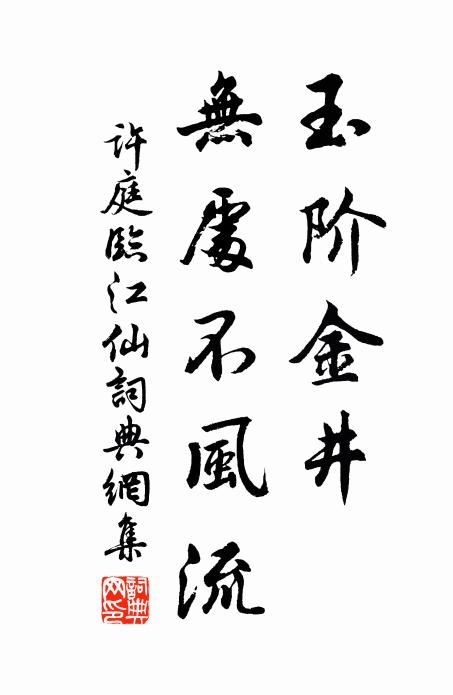 玉阶金井
無處不風流
許庭臨江仙詞典網集
詞典
网印